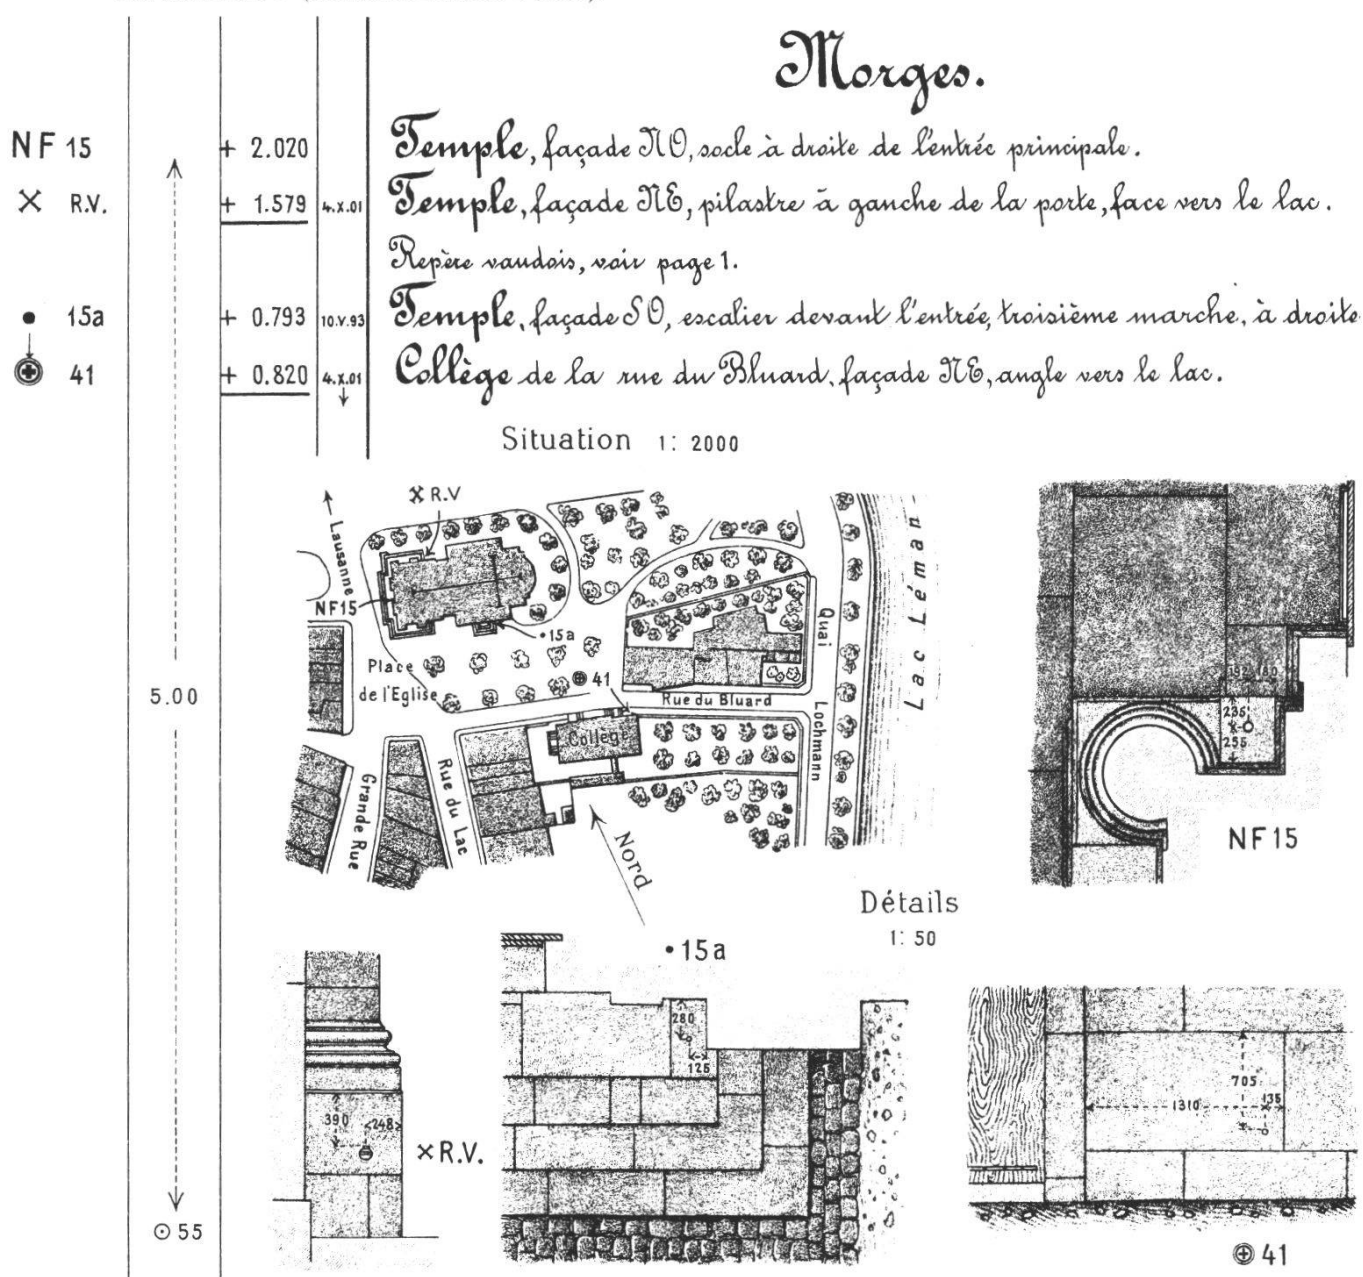 Morges.
NF 15 + 2.020 Temple, façade NO, socle à droite de l'entrée principale.
R.V. + 1.579 4.X.01 Temple, façade NE, pilastre à gauche de la porte, face vers le lac.
Repère vaudois, voir page 1.
15a + 0.793 10.V.93 Temple, façade SO, escalier devant l'entrée, troisième marche, à droite
41 + 0.820 4.X.01 Collège de la rue du Bluard, façade NE, angle vers le lac.
Situation 1: 2000
R.V
Lausanne
NF15
15a
Place
de l'Eglise
41
Rue du Bluard
Collège
Quai
Lochmann
Lac Léman
Grande Rue
Rue du Lac
Nord
5.00
55
192 160
236
255
NF 15
Détails
1: 50
390
248
×R.V.
•15a
280
125
705
1310
135
41